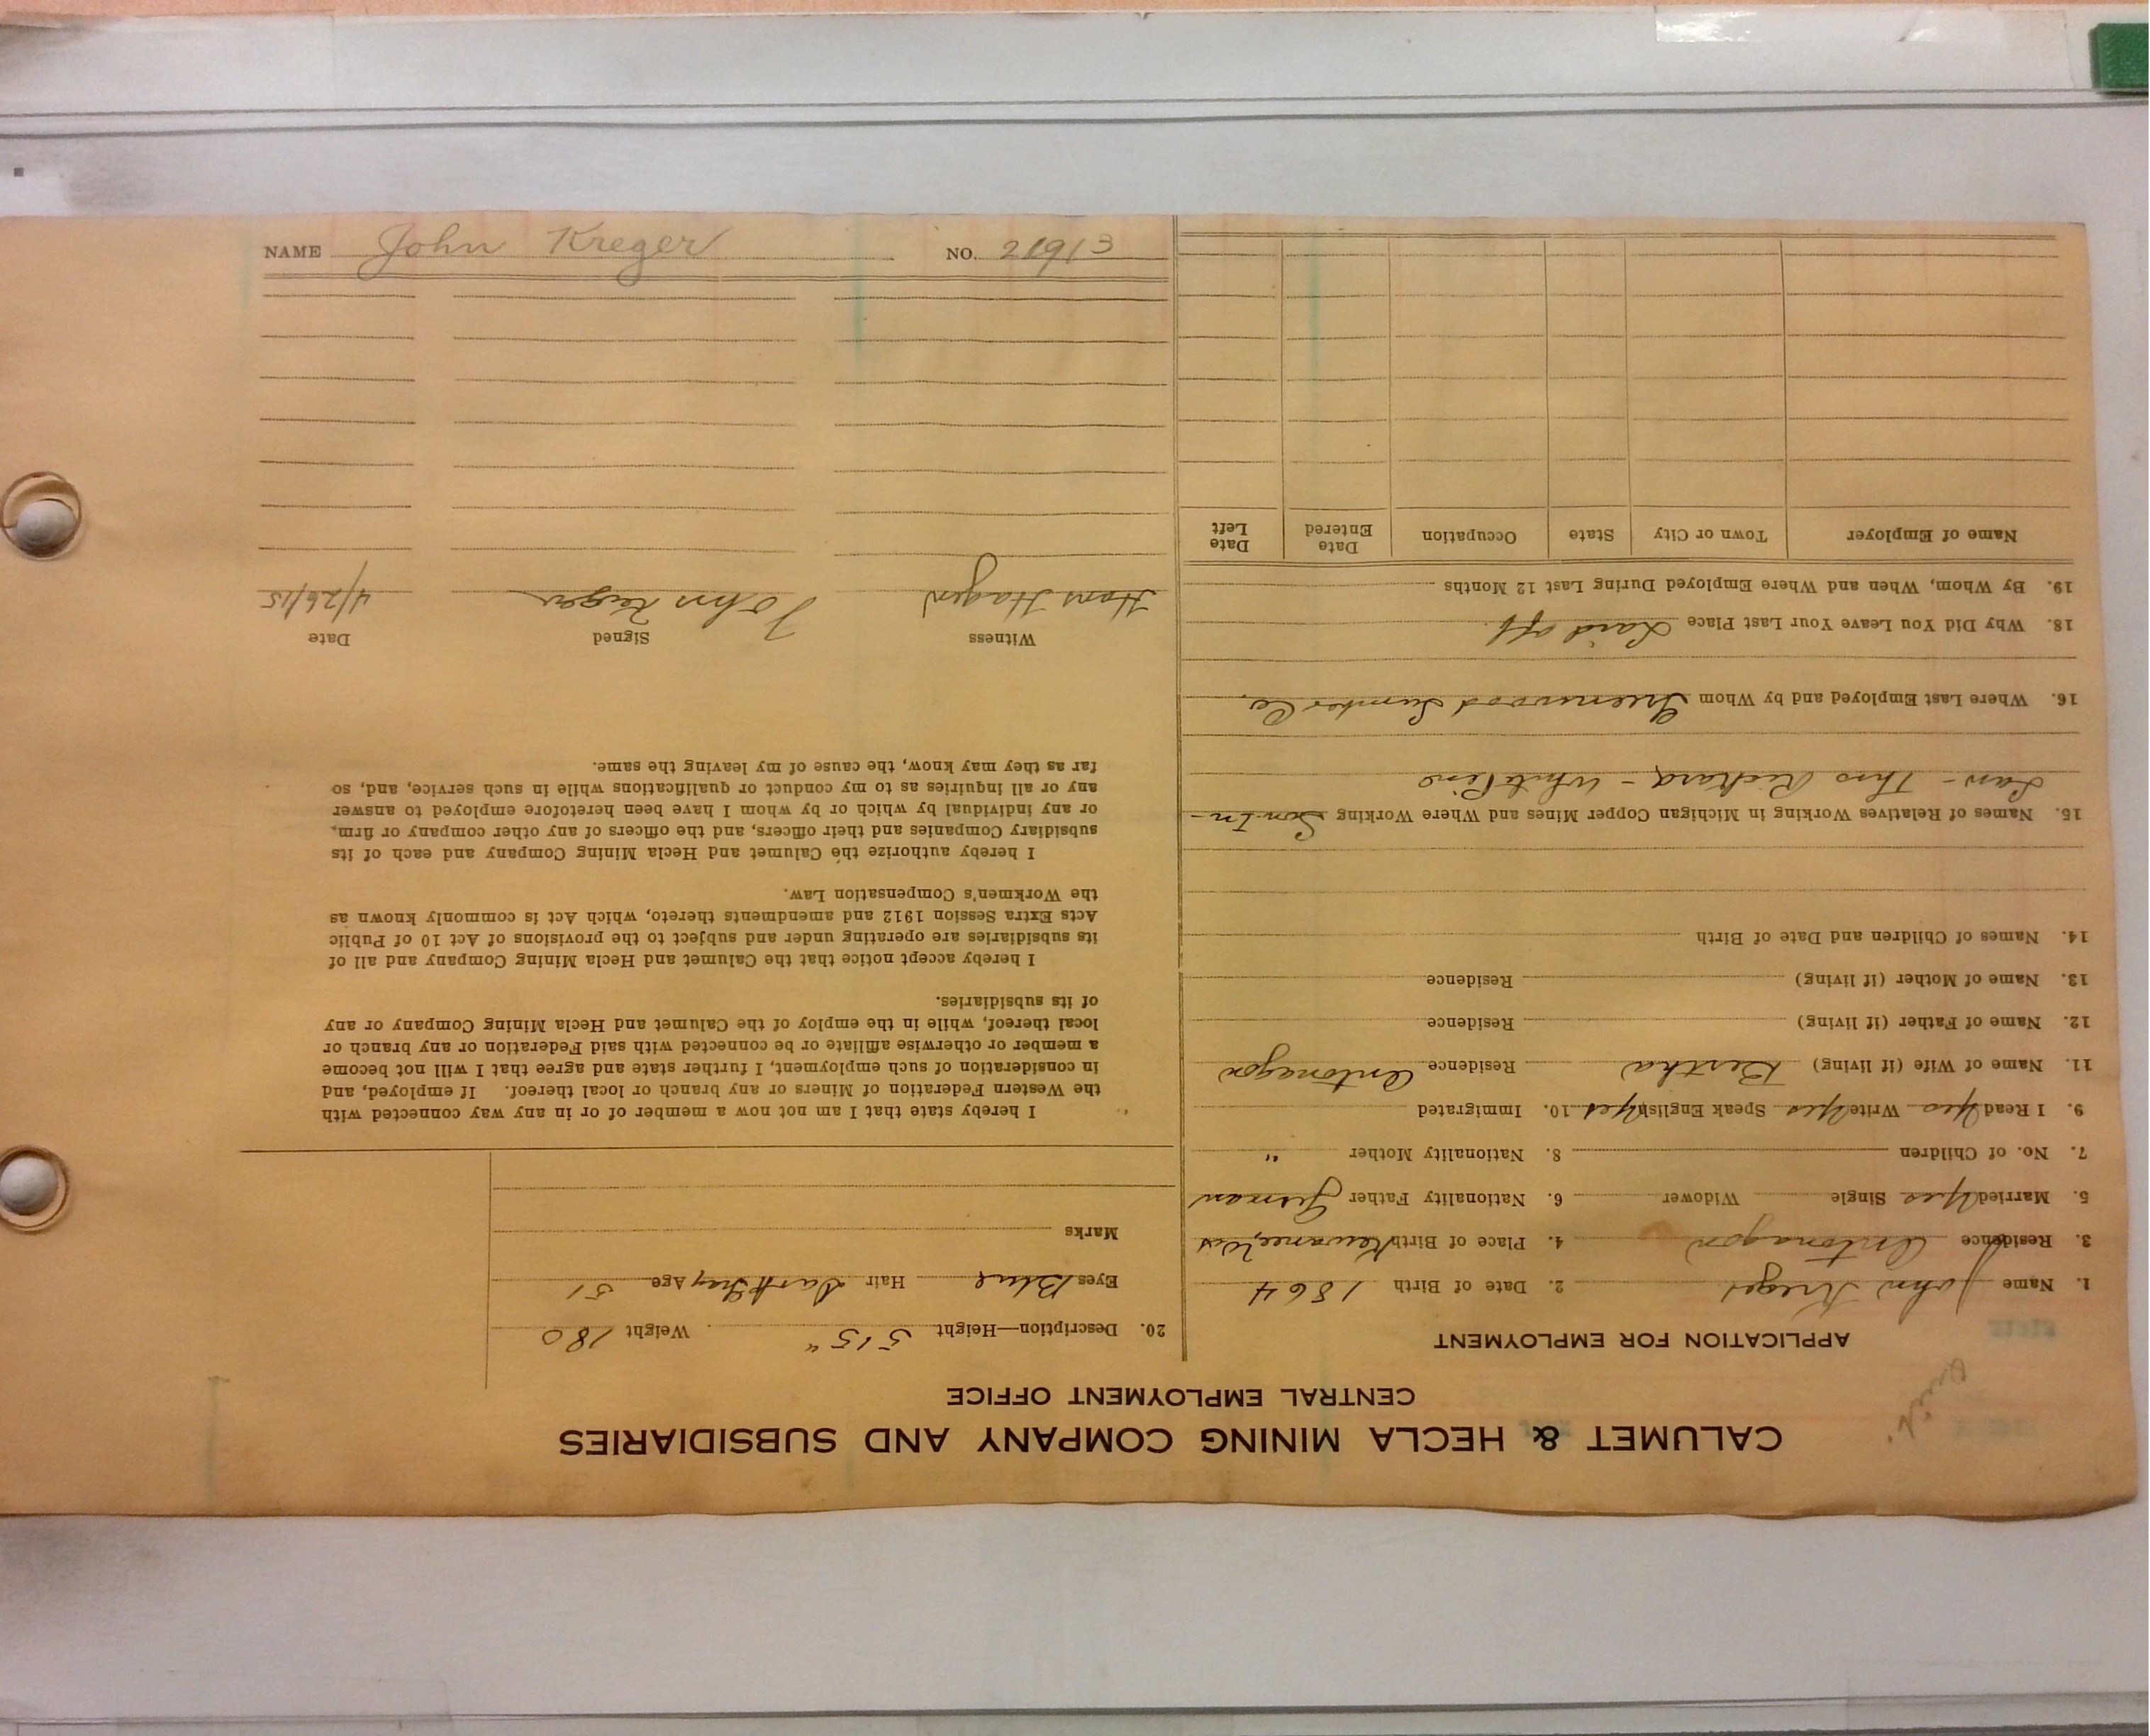 CALUMET & HECLA MINING COMPANY AND SUBSIDIARIES
CENTRAL EMPLOYMENT OFFICE
APPLICATION FOR EMPLOYMENT
1. Name John Kreger 2. Date of Birth 1864
3. Residence Ontonagon 4. Place of Birth Kewanee, Wis
5. Married Yes Single Widower 6. Nationality Father German
7. No. of Children 8. Nationality Mother "
9. I Read Yes Write Yes Speak English Yes 10. Immigrated
11. Name of Wife (if living) Bertha Residence Ontonagon
12. Name of Father (if living) Residence
13. Name of Mother (if living) Residence
14. Names of Children and Date of Birth
15. Names of Relatives Working in Michigan Copper Mines and Where Working Son-In-
Law - Thos Rickard - White Pine
16. Where Last Employed and by Whom Greenwood Lumber Co.
18. Why Did You Leave Your Last Place Laid off.
19. By Whom, When and Where Employed During Last 12 Months
Name of Employer Town or City State Occupation Date Entered Date Left
20. Description—Height 5'5" Weight 180
Eyes Blue Hair Dark Gray Age 51
Marks
I hereby state that I am not now a member of or in any way connected with
the Western Federation of Miners or any branch or local thereof. If employed, and
in consideration of such employment, I further state and agree that I will not become
a member or otherwise affiliate or be connected with said Federation or any branch or
local thereof, while in the employ of the Calumet and Hecla Mining Company or any
of its subsidiaries.
I hereby accept notice that the Calumet and Hecla Mining Company and all of
its subsidiaries are operating under and subject to the provisions of Act 10 of Public
Acts Extra Session 1912 and amendments thereto, which Act is commonly known as
the Workmen's Compensation Law.
I hereby authorize the Calumet and Hecla Mining Company and each of its
subsidiary Companies and their officers, and the officers of any other company or firm,
or any individual by which or by whom I have been heretofore employed to answer
any or all inquiries as to my conduct or qualifications while in such service, and, so
far as they may know, the cause of my leaving the same.
Witness Signed Date
Hans Hagen John Kreger 4/26/15
NAME John Kreger NO. 21913